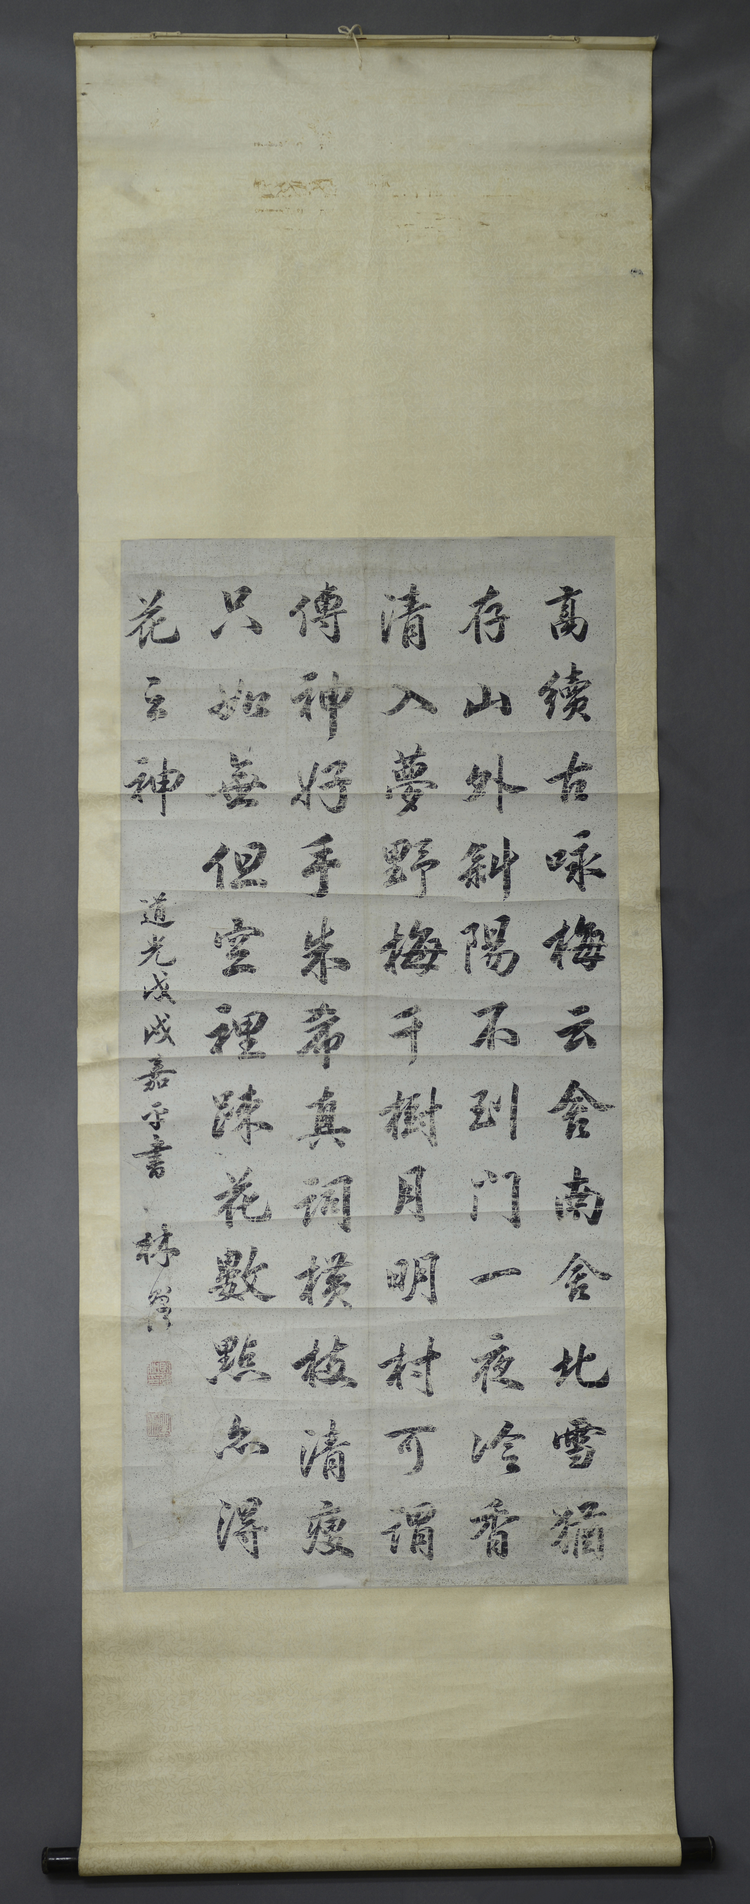 高續古咏梅云舍南舍北雪猶
存山外斜陽不到門一夜冷香
清入夢野梅千樹月明村可謂
傳神好手朱希真詞橫枝清瘦
只如無但空裡踈花數點亦得
花之神
道光戊戌嘉平書 林